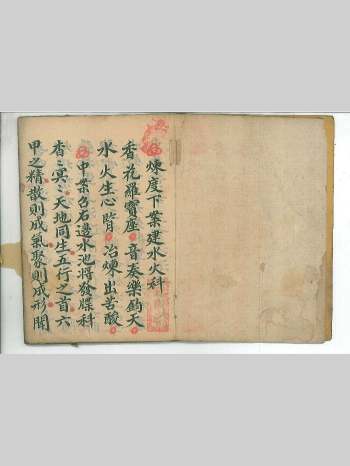 煉度下業建水火科
香花羅寶座音奏樂鈞天
水火生心腎冶煉出苦酸
中業召石邊水池將發牒科
杳ミ冥ミ天地同生五行之首六
甲之精散則成氣聚則成形開